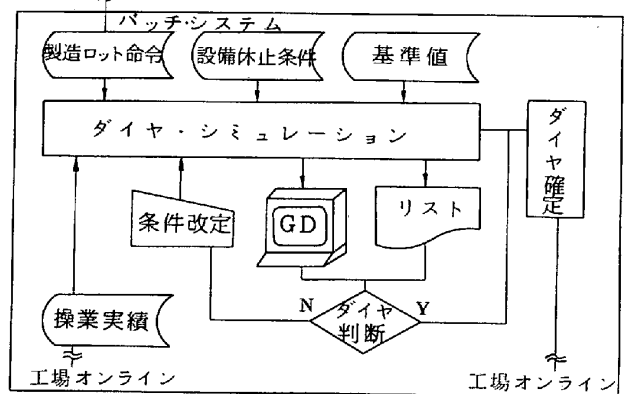 バッチ・システム
製造ロット命令
設備休止条件
基準値
ダイヤ・シミュレーション
ダイヤ確定
条件改定
GD
リスト
N
ダイヤ
判断
Y
操業実績
工場オンライン
工場オンライン